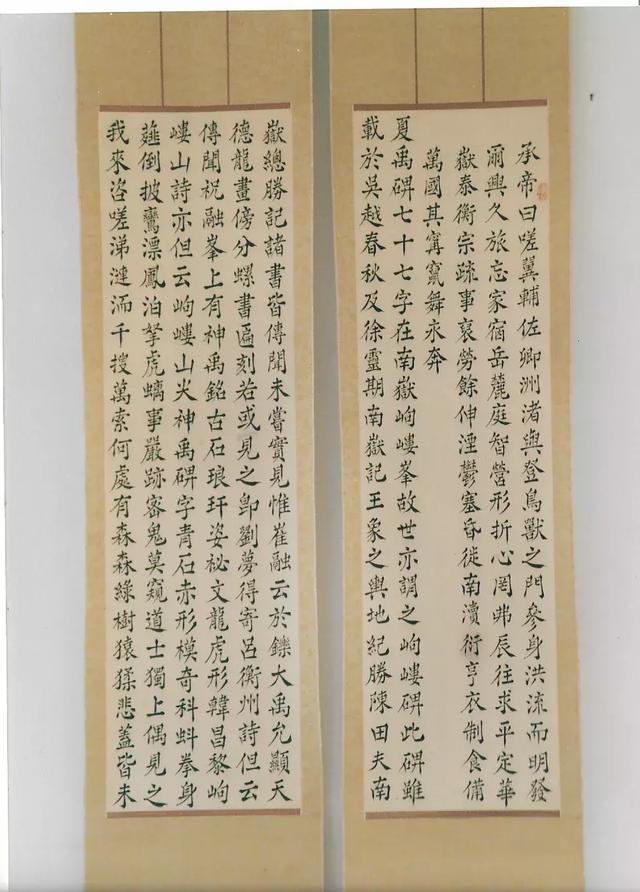 承帝曰嗟翼輔佐卿洲渚與登鳥獸之門參身洪流而明發
爾興久旅忘家宿岳麓庭智營形折心罔弗辰往求平定華
嶽泰衡宗疏事裒勞餘伸湮鬱塞昏徙南瀆衍亨衣制食備
萬國其寧竄舞永奔
夏禹碑七十七字在南嶽岣嶁峯故世亦謂之岣嶁碑此碑雖
載於吳越春秋及徐靈期南嶽記王象之輿地紀勝陳田夫南
嶽總勝記諸書皆傳聞未嘗實見惟崔融云於鑠大禹允顯天
德龍畫傍分螺書匾刻若或見之即劉夢得寄呂衡州詩但云
傳聞祝融峯上有神禹銘古石琅玕姿祕文龍虎形韓昌黎岣
嶁山詩亦但云岣嶁山尖神禹碑字青石赤形模奇科蚪拳身
薤倒披鸞漂鳳泊拏虎螭事嚴跡密鬼莫窺道士獨上偶見之
我來咨嗟涕漣洏千搜萬索何處有森森綠樹猿猱悲蓋皆未